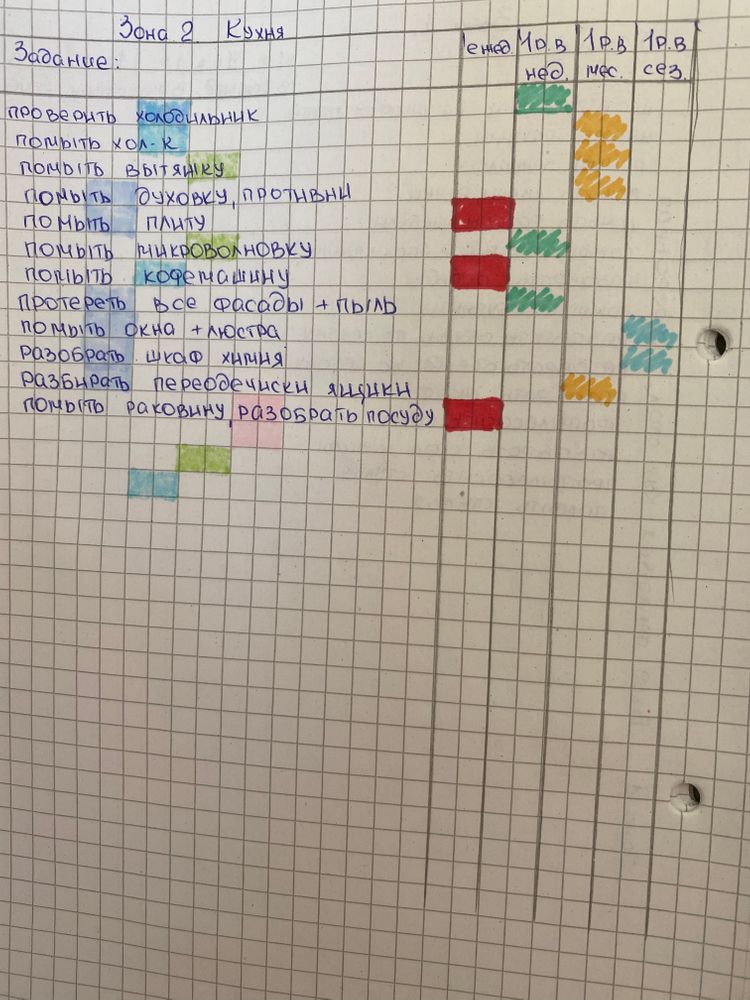 Зона 2 Кухня
Задание:
ежед. 1р.в нед. 1р.в мес. 1р.в сез.
проверить холодильник
помыть хол-к
помыть вытяжку
помыть духовку, противни
помыть плиту
помыть микроволновку
помыть кофемашину
протереть все фасады + пыль
помыть окна + люстра
разобрать шкаф химия
разбирать переодечиски ящики
помыть раковину, разобрать посуду